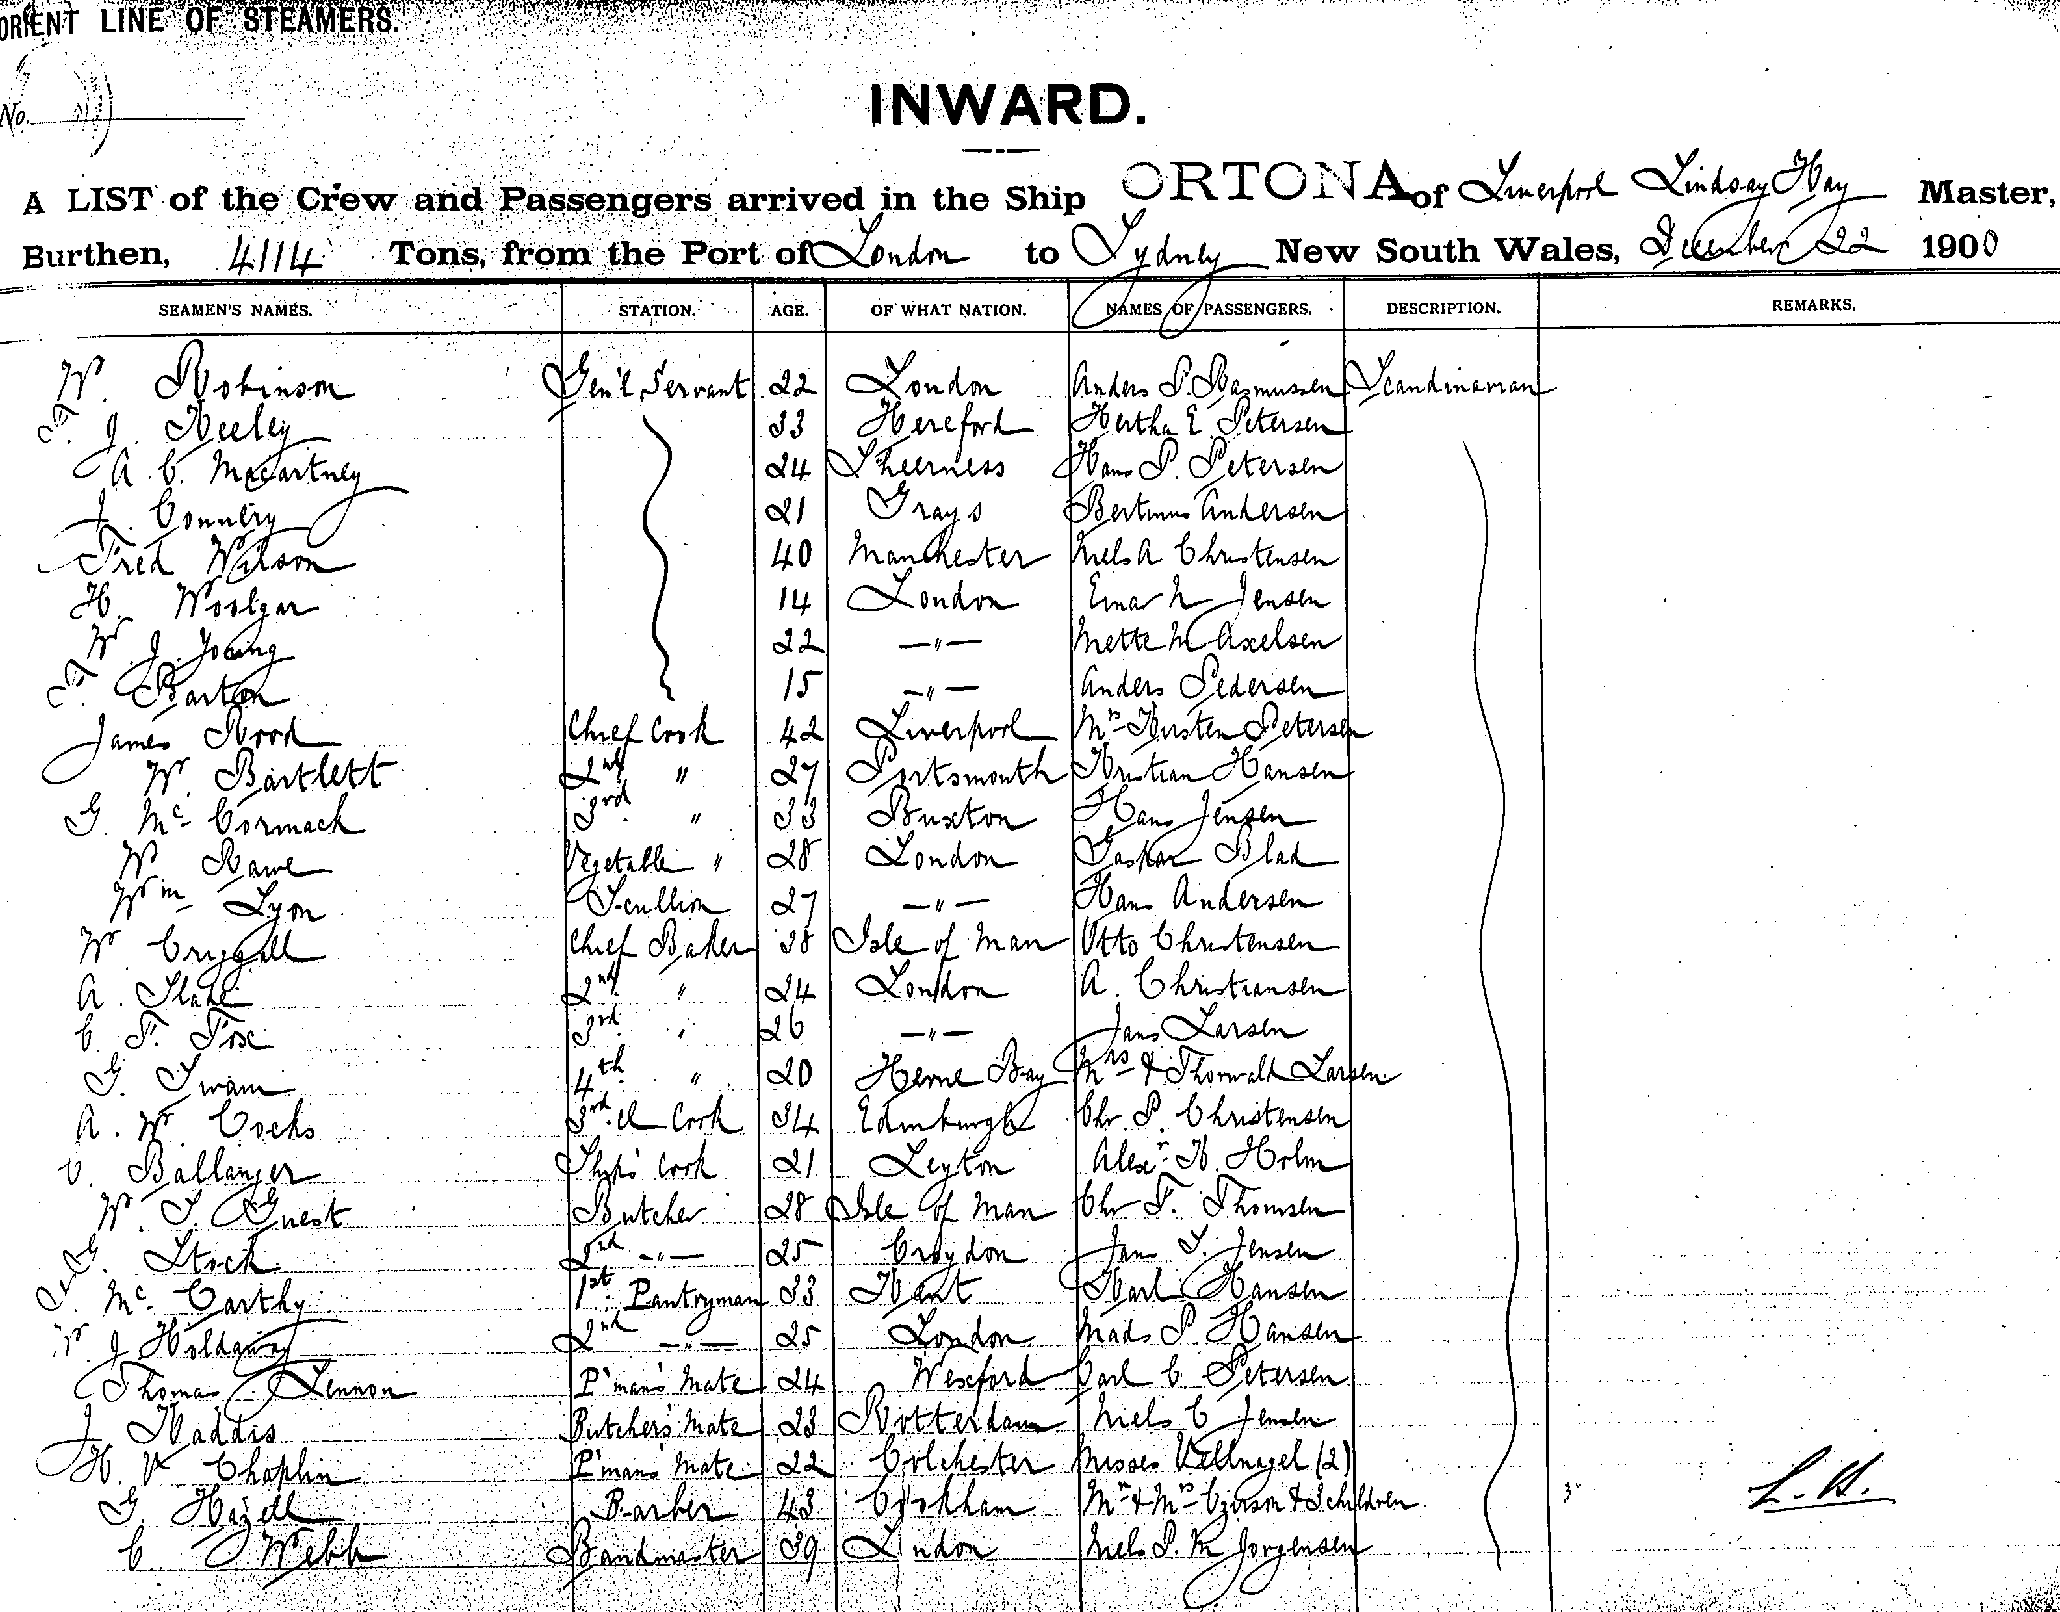 ORIENT LINE OF STEAMERS.
No.
INWARD.
A LIST of the Crew and Passengers arrived in the Ship ORTONA of Liverpool Lindsay Hay Master,
Burthen, 4114 Tons, from the Port of London to Sydney New South Wales, December 22 1900
SEAMEN'S NAMES. STATION. AGE. OF WHAT NATION. NAMES OF PASSENGERS. DESCRIPTION. REMARKS.
W. Robinson Gen'l Servant 22 London Anders P. Rasmussen Scandinavian
J. Keeley 33 Hereford Hertha E. Petersen
A. C. McCartney 24 Sheerness Hans P. Petersen
J. Connery 21 Grays Bertinus Andersen
Fred Wilson 40 Manchester Niels A Christensen
H. Woolgar 14 London Einar N Jensen
W. J. Young 22 —"— Mette M Axelsen
Barton 15 —"— Anders Pedersen
James Rood Chief Cook 42 Liverpool Mrs Kirsten Petersen
W. Bartlett 2nd " 27 Portsmouth Kristian Hansen
G. Mc Cormack 3rd " 33 Buxton Hans Jensen
W. Rawe Vegetable " 28 London Gaspar Blad
Wm Lyon Scullion 27 —"— Hans Andersen
W. Chief Baker 38 Isle of Man Otto Christensen
A. Slade 2nd " 24 London A. Christiansen
C. F. Fox 3rd " 26 —"— Jans Larsen
G. Swain 4th " 20 Herne Bay Mrs & Thorwald Larsen
A. W. Cocks 3rd Cl Cook 34 Edinburgh Chr P. Christensen
C. Ballanger Ship's Cook 21 Leyton Alexr K. Holm
W. T. Guest Butcher 28 Isle of Man Chr F. Thomsen
Stock 2nd —"— 25 Croydon Jans T. Jensen
Mc Carthy 1st Pantryman 33 Kent Karl Hansen
W. J Holdaway 2nd —"— 25 London Mads P. Hansen
Thomas Lennon P'man's Mate 24 Wexford Carl C. Petersen
J Haddis Butcher's Mate 23 Rotterdam Niels C Jensen
H. V Chaplin P'man's Mate 22 Colchester Misses Vellnagel (2)
G. Hazell Barber 43 Cookham Mr & Mrs & 3 children 3 L. H.
C Webb Bandmaster 39 London Niels P. M Jorgensen